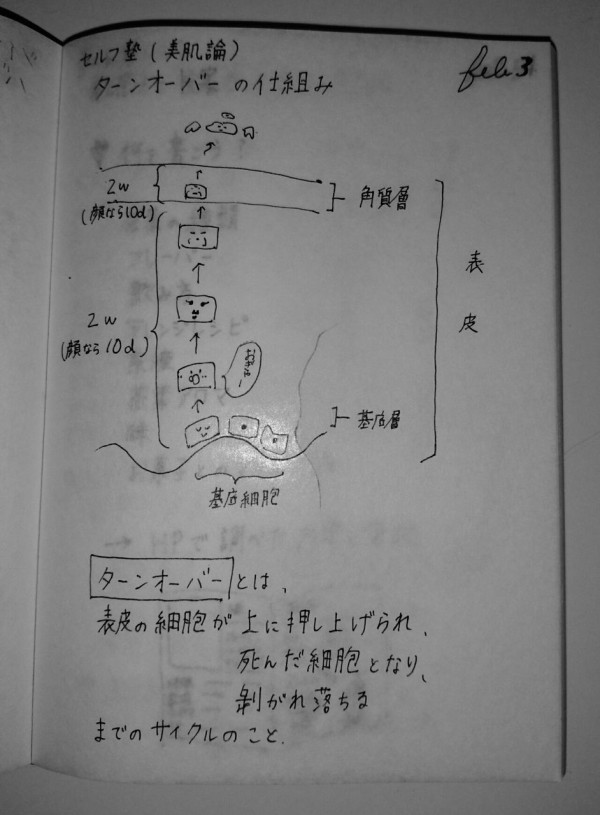 セルフ塾(美肌論)
feb 3
ターンオーバーの仕組み
2w
(顔なら10d)
角質層
表皮
2w
(顔なら10d)
基底層
基底細胞
ターンオーバーとは、
表皮の細胞が上に押し上げられ、
死んだ細胞となり、
剥がれ落ちる
までのサイクルのこと.